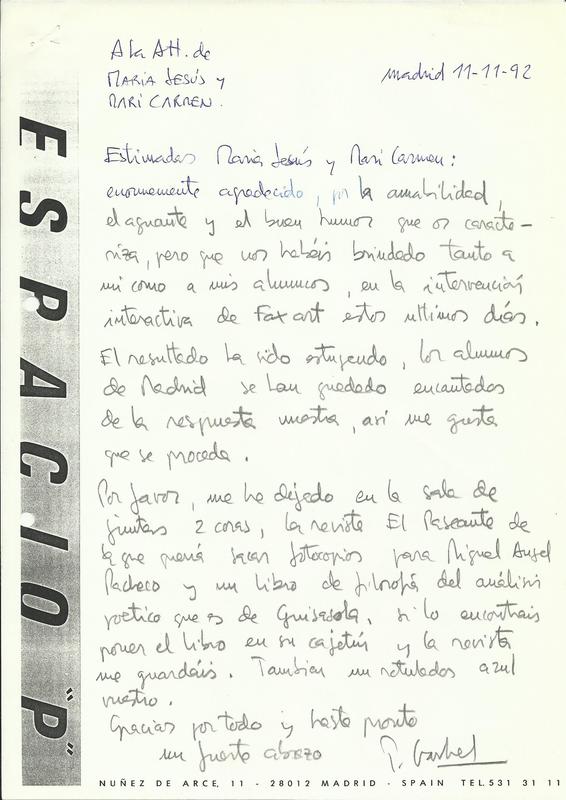 A la Att. de
MARIA JESÚS y
MARI CARMEN.
madrid 11-11-92
Estimadas Maria Jesús y Mari Carmen:
enormemente agradecido, por la amabilidad,
el aguante y el buen humor que os caracte-
riza, pero que nos habéis brindado tanto a
mi como a mis alumnos, en la intervención
interactiva de Fax art estos ultimos días.
El resultado ha sido estupendo, los alumnos
de Madrid se han quedado encantados
de la respuesta vuestra, asi me gusta
que se proceda.
Por favor, me he dejado en la sala de
juntas 2 cosas, la revista El Paseante de
la que quería sacar fotocopias para Miguel Angel
Pacheco y un libro de filosofía del análisis
poetico que es de Guisasola, si lo encontrais
poner el libro en su cajetín y la revista
me guardáis. Tambien un rotulador azul
vuestro.
Gracias por todo y hasta pronto
un fuerte abrazo
ESPACIO "P"
NUÑEZ DE ARCE, 11 - 28012 MADRID - SPAIN TEL. 531 31 11